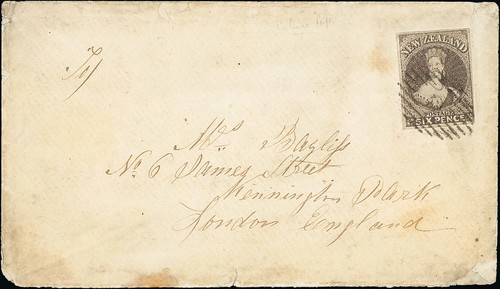 NEW ZEALAND
POSTAGE
SIX PENCE
To/
Mrs Bayliss
No. 6 James Street
Kennington Park
London England